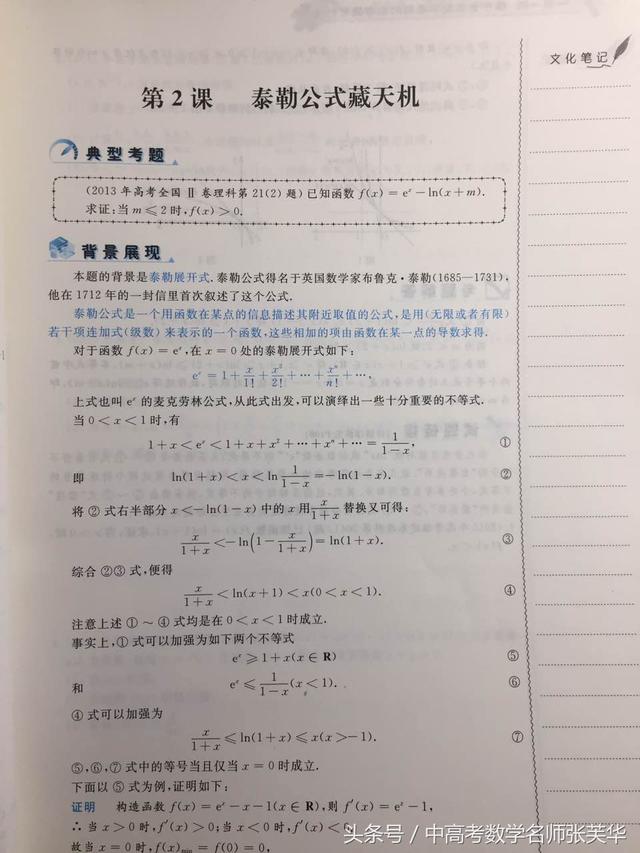 文化笔记
第2课 泰勒公式藏天机
典型考题
(2013年高考全国Ⅱ卷理科第21(2)题)已知函数 f(x)=eˣ-ln(x+m).
求证:当 m≤2 时,f(x)>0.
背景展现
本题的背景是泰勒展开式.泰勒公式得名于英国数学家布鲁克·泰勒(1685—1731),
他在1712年的一封信里首次叙述了这个公式.
泰勒公式是一个用函数在某点的信息描述其附近取值的公式,是用(无限或者有限)
若干项连加式(级数)来表示的一个函数,这些相加的项由函数在某一点的导数求得.
对于函数 f(x)=eˣ,在 x=0 处的泰勒展开式如下:
eˣ=1+x/1!+x²/2!+…+xⁿ/n!+….
上式也叫 eˣ 的麦克劳林公式,从此式出发,可以演绎出一些十分重要的不等式.
当 0<x<1 时,有
1+x<eˣ<1+x+x²+…+xⁿ+…=1/(1-x), ①
即 ln(1+x)<x<ln 1/(1-x)=-ln(1-x). ②
将②式右半部分 x<-ln(1-x) 中的 x 用 x/(1+x) 替换又可得:
x/(1+x)<-ln(1-x/(1+x))=ln(1+x). ③
综合②③式,便得
x/(1+x)<ln(x+1)<x(0<x<1). ④
注意上述①~④式均是在 0<x<1 时成立.
事实上,①式可以加强为如下两个不等式
eˣ≥1+x(x∈R) ⑤
和 eˣ≤1/(1-x)(x<1). ⑥
④式可以加强为
x/(1+x)≤ln(1+x)≤x(x>-1). ⑦
⑤,⑥,⑦式中的等号当且仅当 x=0 时成立.
下面以⑤式为例,证明如下:
证明 构造函数 f(x)=eˣ-x-1(x∈R),则 f′(x)=eˣ-1,
∴当 x>0 时,f′(x)>0;当 x<0 时,f′(x)<0
故当 x=0 时,f(x)min=f(0)=0,
头条号 / 中高考数学名师张芙华